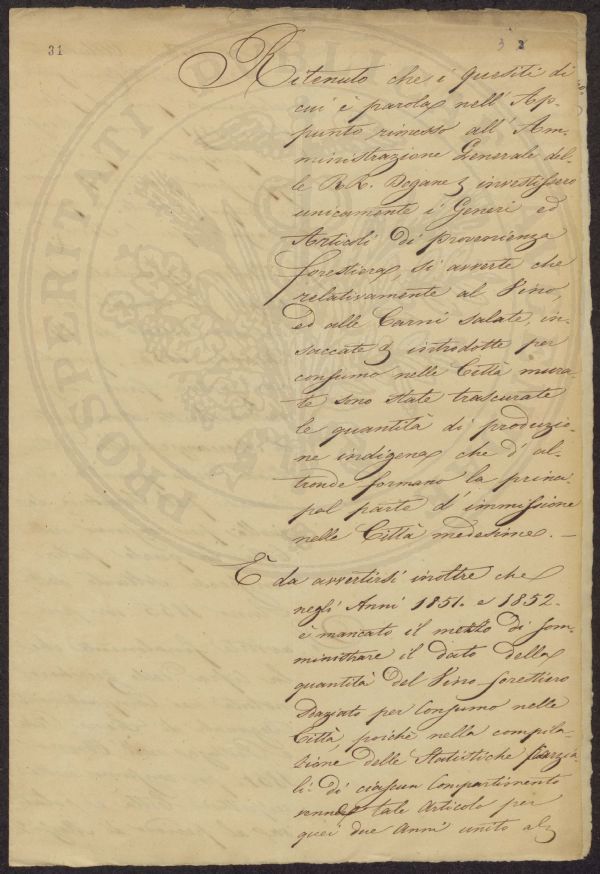 31
3 2
Ritenuto che i quesiti di
cui è parola nell' Ap-
punto rimesso all' Am-
ministrazione Generale del-
le RR. Dogane investissero
unicamente i Generi ed
Articoli di provenienza
forestiera, si avverte che
relativamente al Vino,
ed alle Carni salate, in-
saccate & introdotte per
consumo nelle Città mura-
te sono state trascurate
le quantità di produzio-
ne indigena che d' al-
tronde formano la princi-
pal parte d' immissione
nelle Città medesime. —
È da avvertirsi inoltre che
negli Anni 1851. e 1852.
è mancato il mezzo di som-
ministrare il dato della
quantità del Vino forestiero
Daziato per Consumo nelle
Città poichè nella compila-
zione delle Statistiche parzia-
li di ciascun Compartimento
venne tale Articolo per
quei due Anni unito al
PROSPERITATI